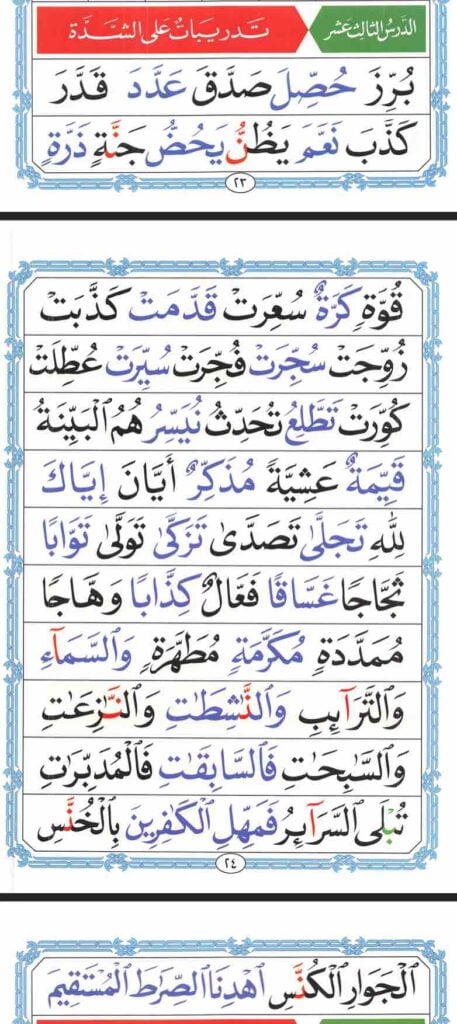 الدَّرسُ الثَّالِث عَشَر تَدرِيبَاتٌ عَلَى الشَّدَّة
بُرِّزَ حُصِّلَ صَدَّقَ عَدَّدَ قَدَّرَ
كَذَّبَ نَعَّمَ يَظُنُّ يَحُضُّ جَنَّةٍ ذَرَّةٍ
٢٣
قُوَّةٍ كَرَّةٌ سُعِّرَتْ قَدَّمَتْ كَذَّبَتْ
زُوِّجَتْ سُجِّرَتْ فُجِّرَتْ سُيِّرَتْ عُطِّلَتْ
كُوِّرَتْ تَطَّلِعُ تُحَدِّثُ نُيَسِّرُ هُمُ ٱلْبَيِّنَةُ
قَيِّمَةٌ عَشِيَّةً مُذَكِّرٌ أَيَّانَ إِيَّاكَ
لِلّٰهِ تَجَلَّىٰ تَصَدَّىٰ تَزَكَّىٰ تَوَلَّىٰ تَوَّابًا
ثَجَّاجًا غَسَّاقًا فَعَّالٌ كِذَّابًا وَهَّاجًا
مُمَدَّدَةٍ مُكَرَّمَةٍ مُطَهَّرَةٍ وَٱلسَّمَآءِ
وَٱلتَّرَآئِبِ وَٱلنَّٰشِطَٰتِ وَٱلنَّٰزِعَٰتِ
وَٱلسَّٰبِحَٰتِ فَٱلسَّٰبِقَٰتِ فَٱلْمُدَبِّرَٰتِ
تُبْلَى ٱلسَّرَآئِرُ فَمَهِّلِ ٱلْكَٰفِرِينَ بِٱلْخُنَّسِ
٢٤
ٱلْجَوَارِ ٱلْكُنَّسِ ٱهْدِنَا ٱلصِّرَٰطَ ٱلْمُسْتَقِيمَ